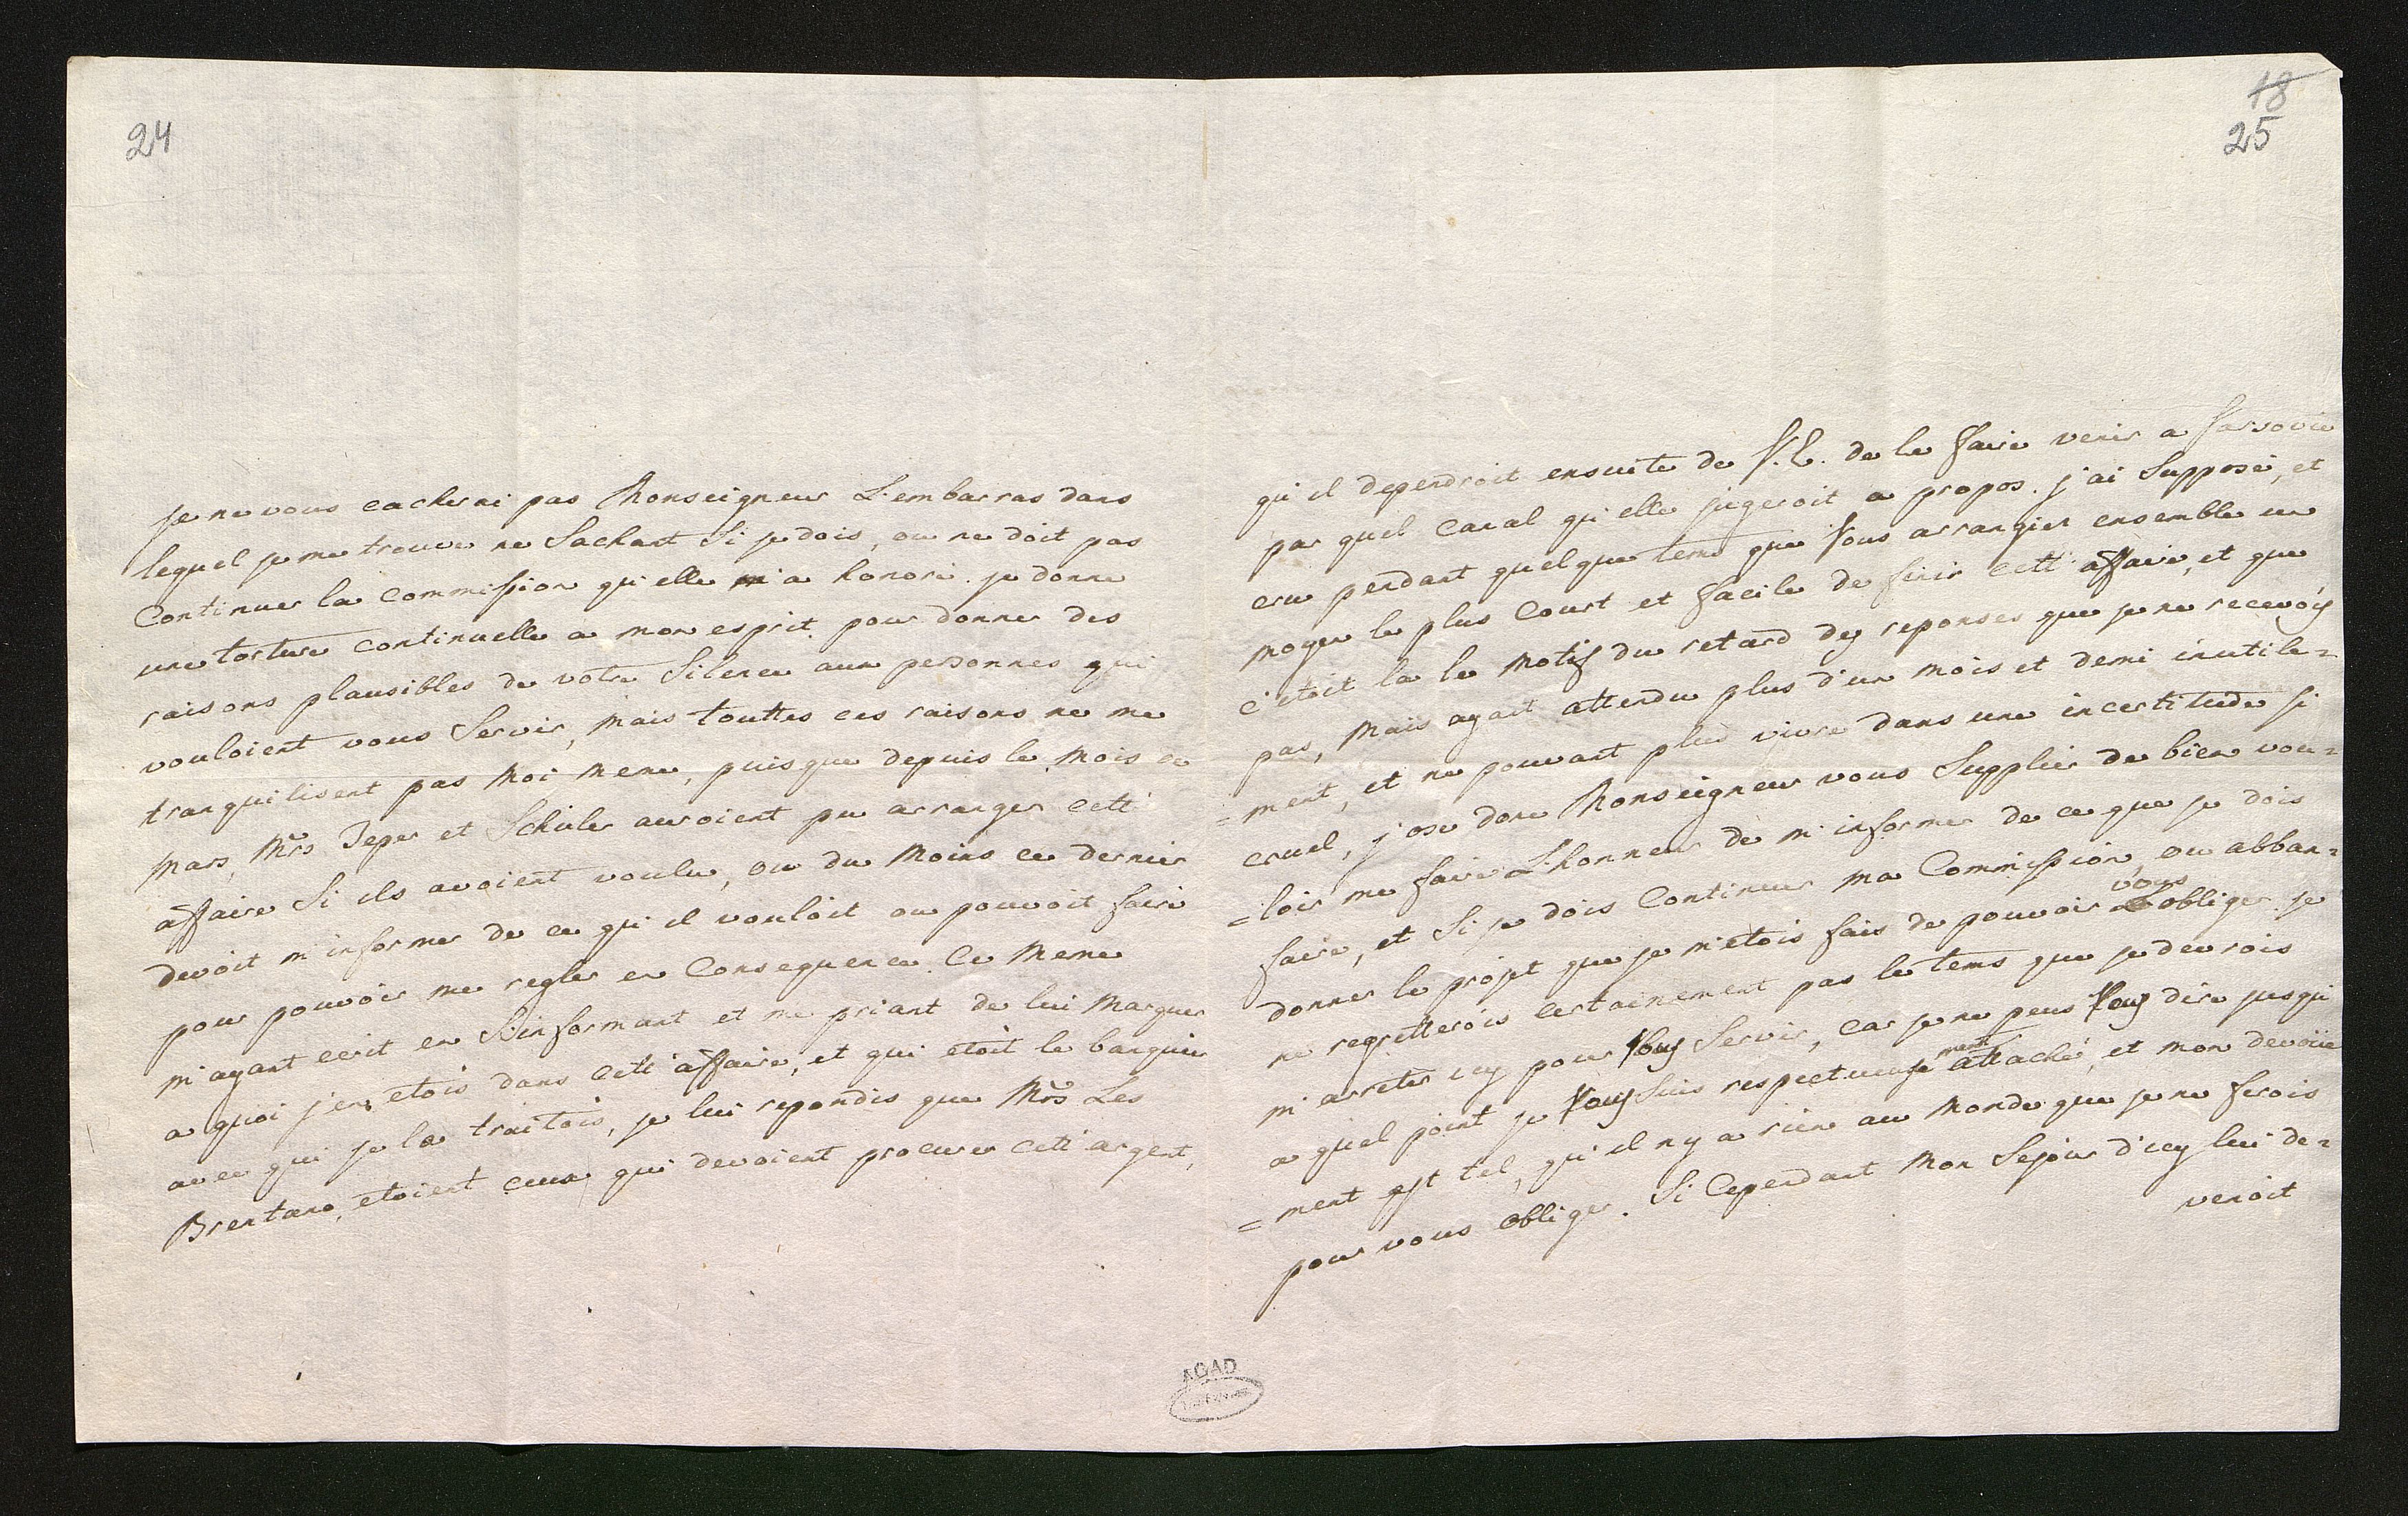 24
je ne vous cacherai pas Monseigneur L'embarras dans
lequel je me trouve ne Sachant Si je dois, ou ne doit pas
Continuer la commission qu'elle m'a honoré. je donne
une torture continuelle a mon esprit pour donner des
raisons plausibles de votre Silence aux personnes qui
vouloient vous Servir, mais touttes ces raisons ne me
tranquilisent pas Moi meme, puisque depuis le Mois de
Mars, Mrs Teper et Schuler auroient pu arranger cette
affaire Si ils avoient voulu, ou du Moins ce dernier
devoit m'informer de ce qu'il vouloit ou pouvoit faire
pour pouvoir me regler en Consequence. Ce Meme
m'ayant ecrit en S'informant et me priant de lui Marquer
a quoi j'en etois dans cette affaire, et qui etoit le banquier
avec qui je la traitois, je lui repondis que Mrs Les
Brentano, etoient ceux qui devoient procurer cette argent,
18
25
qu'il dependroit ensuite de V.E. de le faire venir a Varsovie
par quel canal qu'elle jugeroit a propos. j'ai Supposé, et
cru pendant quelque tems que Vous arrangier ensemble un
moyen le plus Court et facile de finir cette affaire, et que
c'etoit la le Motif du retard des reponses que je ne recevois
pas, Mais ayant attendu plus d'un mois et demi inutile=
=ment, et ne pouvant plus vivre dans une incertitude si
cruel, j'ose donc Monseigneur vous Supplier de bien vou=
=loir me faire L'honneur de m'informer de ce que je dois
faire, et Si je dois Continuer ma Commission, ou abban=
donner le projet que je m'etois fais de pouvoir vous obliger. je
ne regretterois certainement pas le tems que je devrois
m'arreter icy pour Vous Servir, car je ne peus Vous dire jusqu'
a quel point je Vous Suis respectueusement attaché, et mon devoüe
=ment est tel, qu'il n'y a rien au Monde que je ne ferois
pour vous obliger. Si Cependant Mon Sejour d'icy lui de=
venoit
AGAD